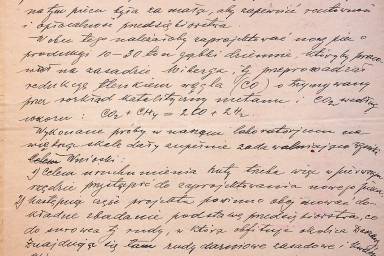 na tym piecu była za mała, aby zapewnić rentowność
i opłacalność przedsiębiorstwa
Wobec tego należałoby zaprojektować nowy piec o
produkcji 10-30 ton gąbki dziennie, któryby praco-
wał na zasadzie Wiberga, tj przeprowadzać
redukcję tlenkiem węgla (CO) otrzymywany
przez rozkład katalityczny metanu i CO₂ według
wzoru: CO₂ + CH₄ = 2CO + 2H₂
Wykonane próby w naszym laboratorjum na
większą skalę dały zupełnie zadowalniające wyniki
Wnioski:
1) Celem uruchomienia huty trzeba więc w pierwszym
rzędzie przystąpić do zaprojektowania nowego pieca,
2) następną część projektu powinno obejmować do-
kładne zbadanie podstaw przedsiębiorstwa, co
do surowca tj rudy, w którą obfituje okolica
Znajdują się tam rudy darniowe zasadowe i